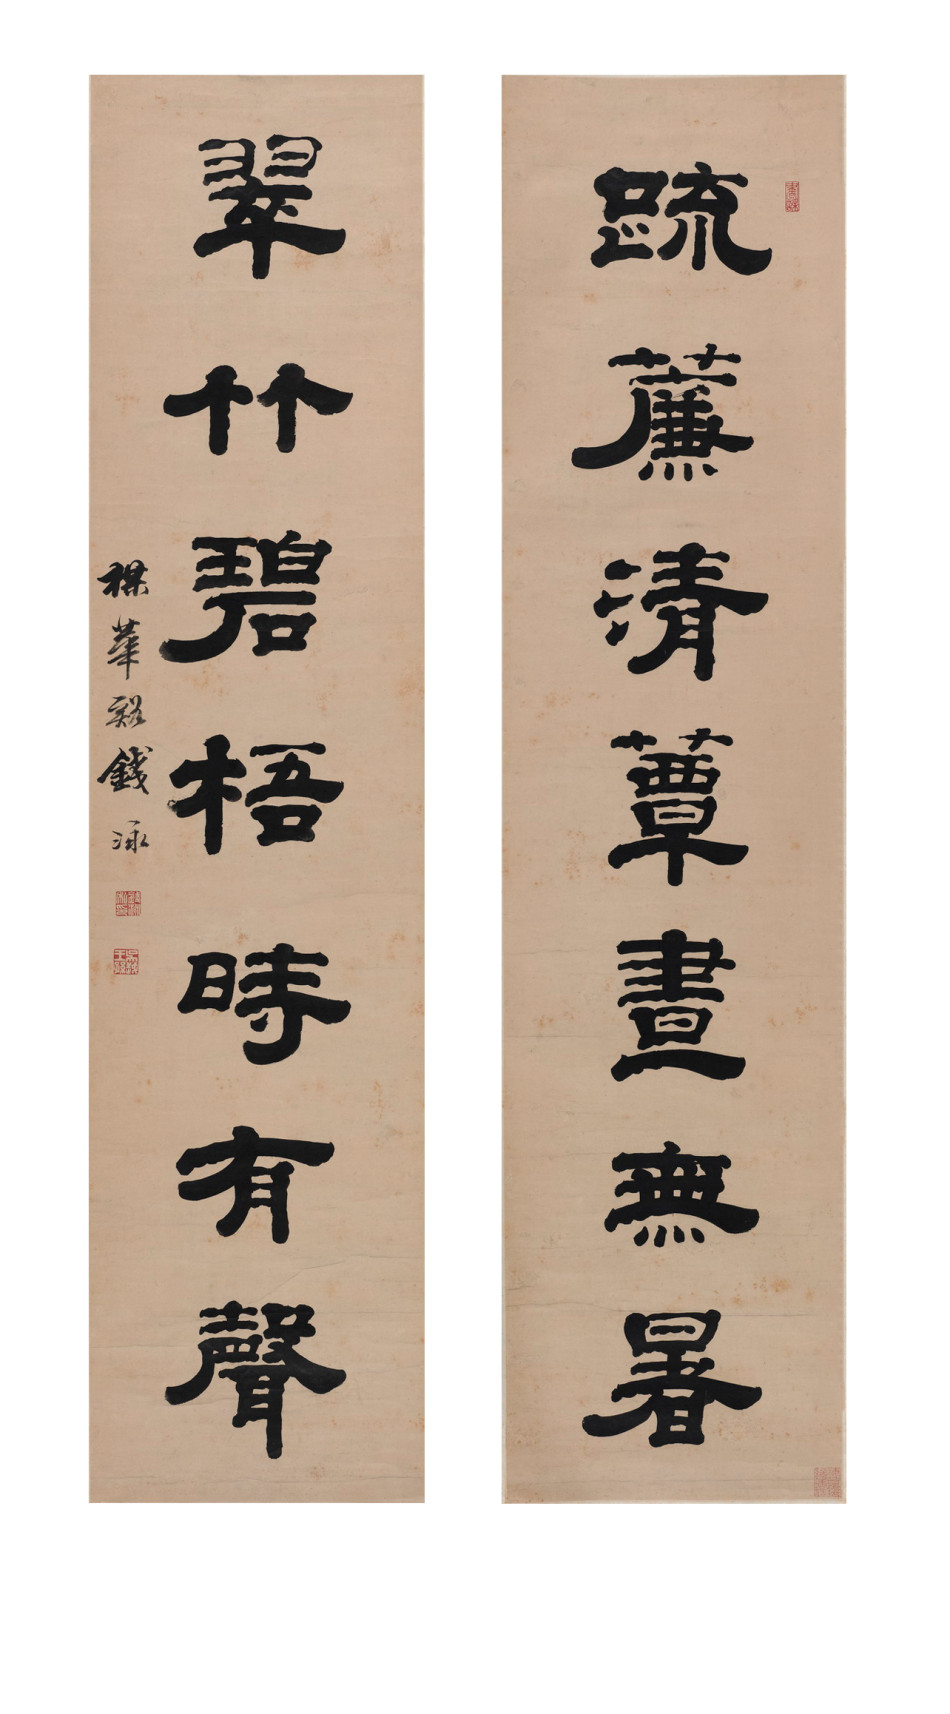 疏簾清簟晝無暑
翠竹碧梧時有聲
楳華谿錢泳